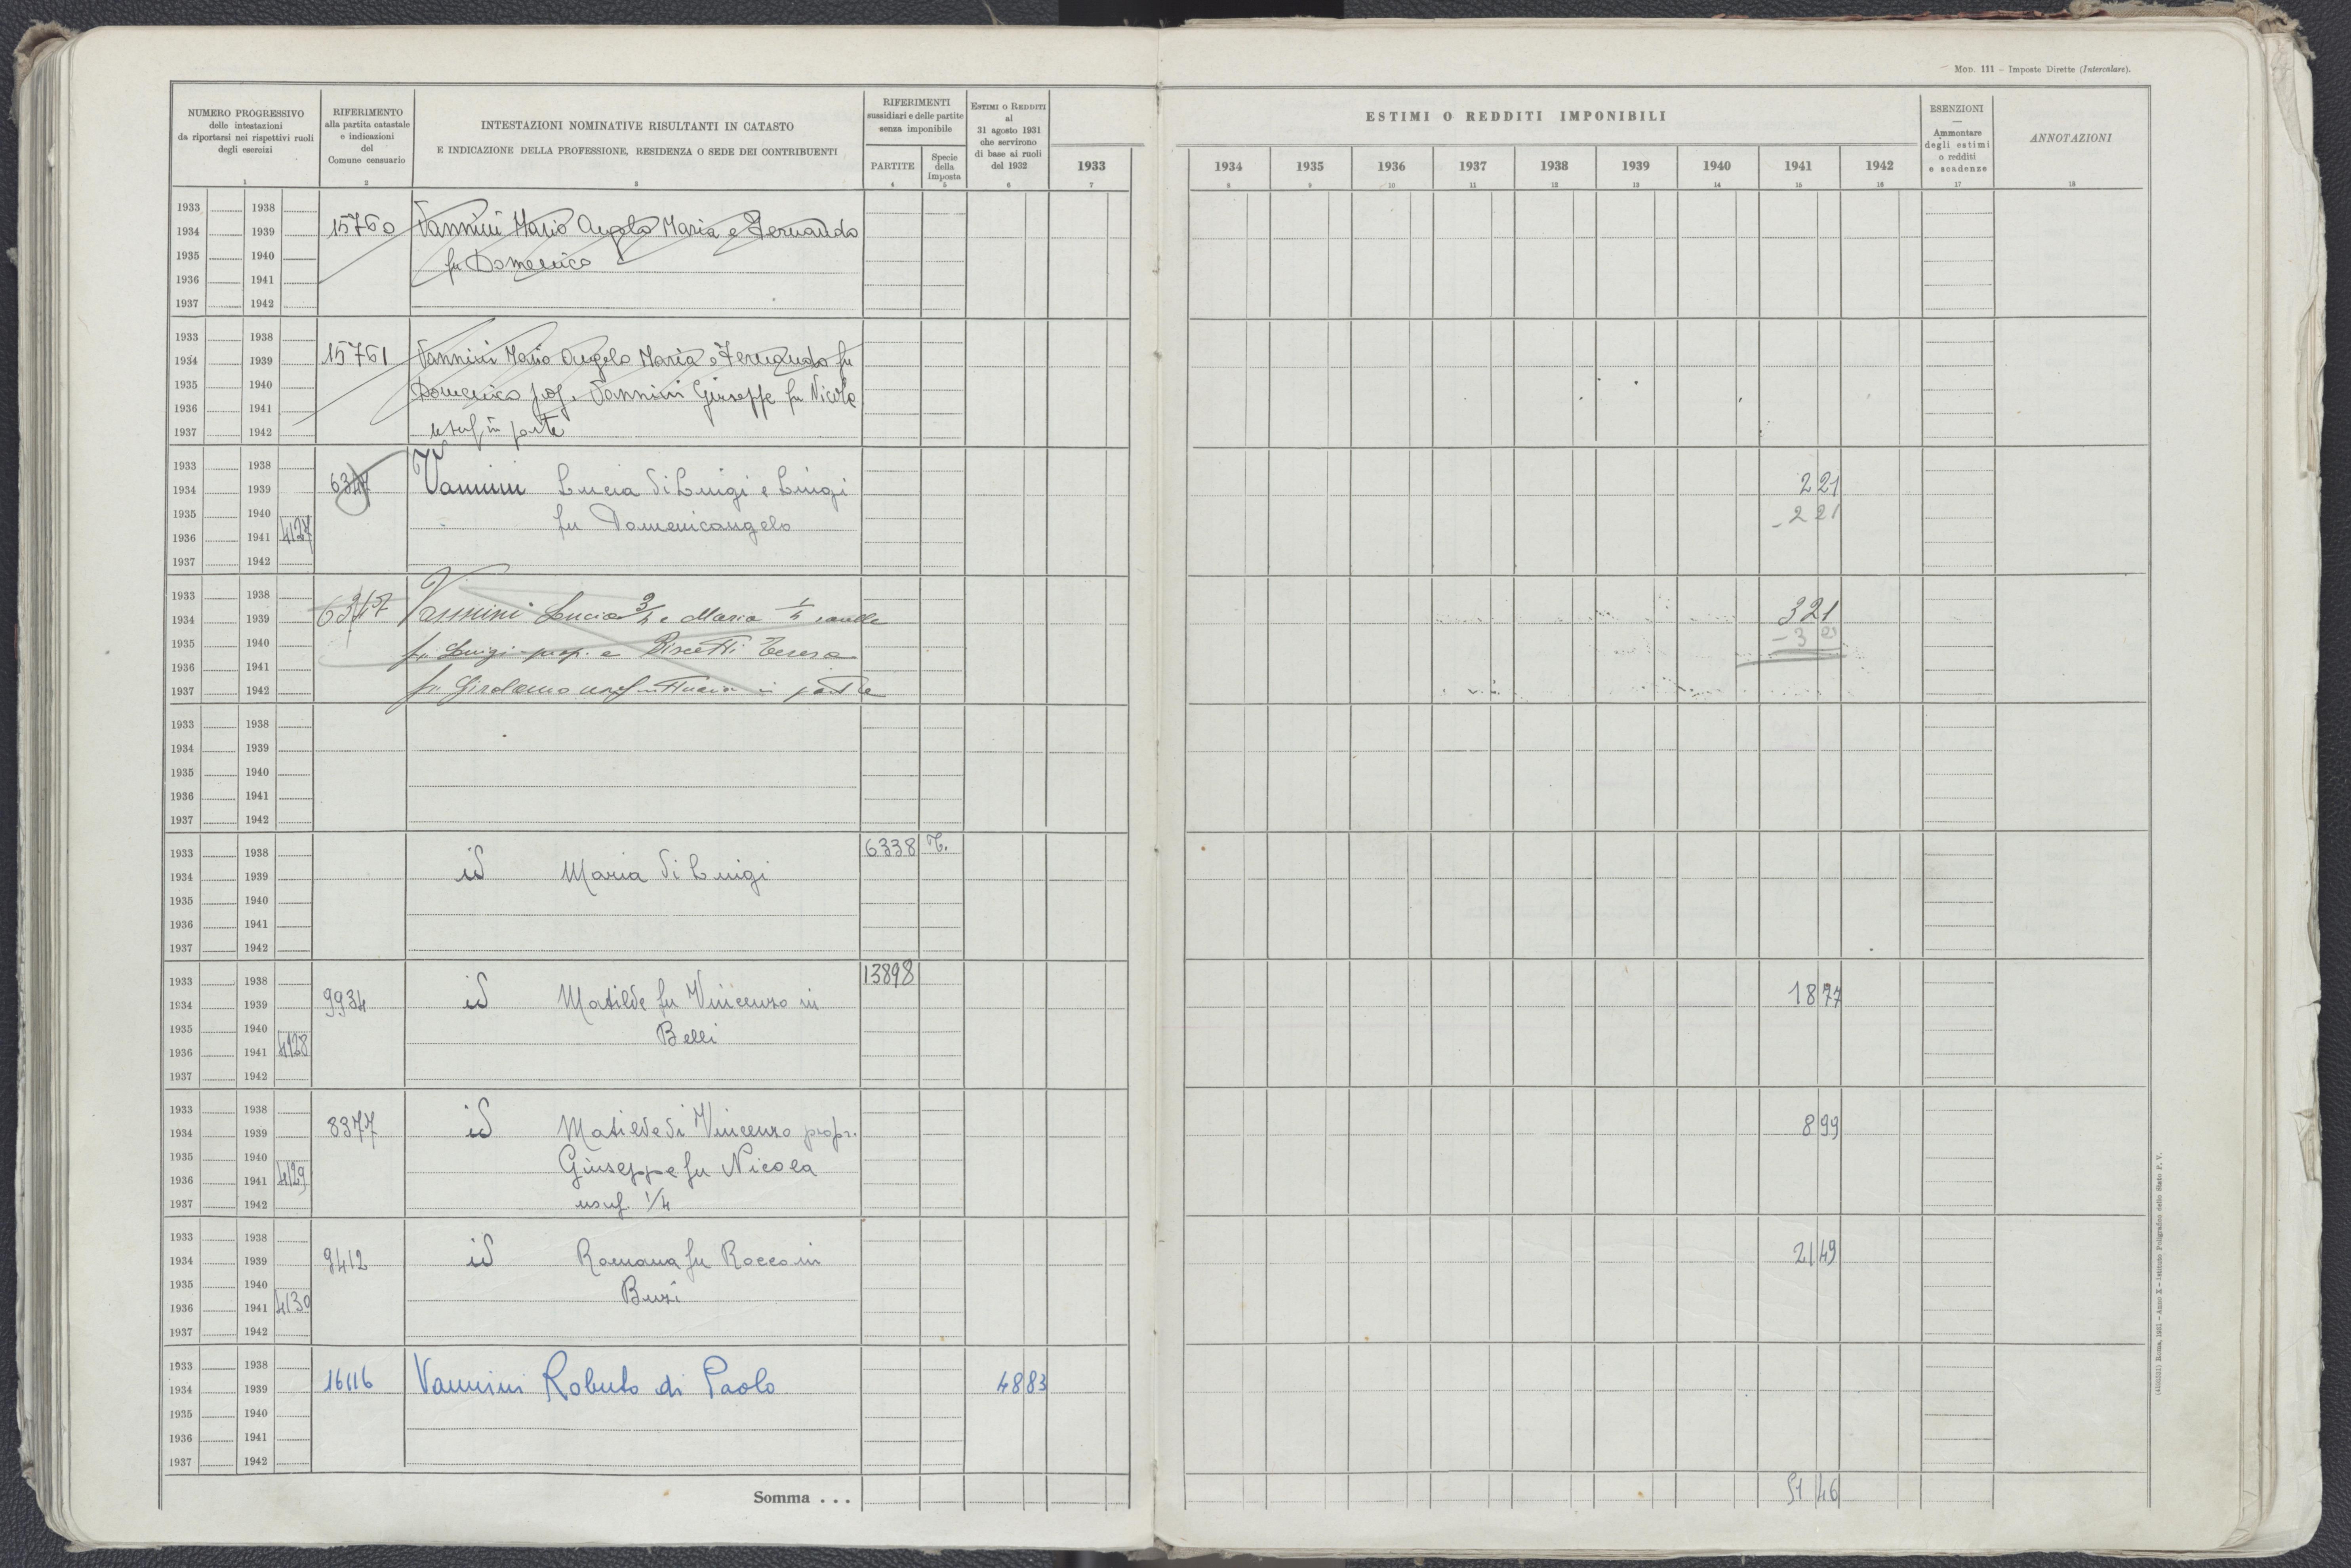 MOD. 111 - Imposte Dirette (Intercalare).
NUMERO PROGRESSIVO
delle intestazioni
da riportarsi nei rispettivi ruoli
degli esercizi
1
RIFERIMENTO
alla partita catastale
e indicazioni
del
Comune censuario
2
INTESTAZIONI NOMINATIVE RISULTANTI IN CATASTO
E INDICAZIONE DELLA PROFESSIONE, RESIDENZA O SEDE DEI CONTRIBUENTI
3
RIFERIMENTI
sussidiari e delle partite
senza imponibile
PARTITE
4
Specie
della
Imposta
5
ESTIMI O REDDITI
al
31 agosto 1931
che servirono
di base ai ruoli
del 1932
6
1933
7
ESTIMI O REDDITI IMPONIBILI
1934 1935 1936 1937 1938 1939 1940 1941 1942
8 9 10 11 12 13 14 15 16
ESENZIONI
—
Ammontare
degli estimi
o redditi
e scadenze
17
ANNOTAZIONI
18
1933 1938
1934 1939 15760 Vannini Mario Angelo Maria e Fernando
1935 1940 fu Domenico
1936 1941
1937 1942
1933 1938
1934 1939 15761 Vannini Mario Angelo Maria e Fernando fu
1935 1940 Domenico prof. Vannini Giuseppe fu Nicola
1936 1941
1937 1942 usuf in parte
1933 1938
1934 1939 6347 Vannini Lucia di Luigi e Luigi 221
1935 1940 fu Domenicangelo -221
1936 1941 4127
1937 1942
1933 1938
1934 1939 6347 Vannini Lucia 3/4 e Maria 1/4 sorelle 321
1935 1940 fu Luigi prop. e Teresa -3 21
1936 1941
1937 1942 fu Girolamo usufruttuaria in parte
1933 1938
1934 1939
1935 1940
1936 1941
1937 1942
1933 1938 6338 T.
1934 1939 id Maria di Luigi
1935 1940
1936 1941
1937 1942
1933 1938 13898
1934 1939 9934 id Matilde fu Vincenzo in 1877
1935 1940 Belli
1936 1941 4128
1937 1942
1933 1938
1934 1939 8377 id Matilde di Vincenzo propr. 899
1935 1940 Giuseppe fu Nicola
1936 1941 4129
1937 1942 usuf. 1/4
1933 1938
1934 1939 9412 id Romana fu Rocco in 2149
1935 1940 Buzi
1936 1941 4130
1937 1942
1933 1938
1934 1939 16116 Vannini Roberto di Paolo 4883
1935 1940
1936 1941
1937 1942
Somma . . . 51 46
Roma, 1931 - Anno X - Istituto Poligrafico dello Stato P. V.